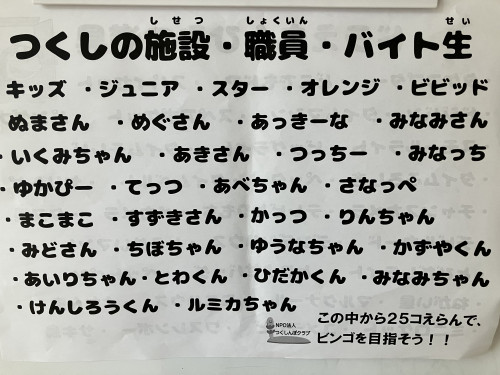 しせつ しょくいん せい
つくしの施設・職員・バイト生
キッズ ・ジュニア ・スター ・オレンジ ・ビビッド
ぬまさん ・めぐさん ・あっきーな ・みなみさん
・いくみちゃん ・あきさん ・つっちー ・みなっち
・ゆかぴー ・てっつ ・あべちゃん ・さなっぺ
・まこまこ ・すずきさん ・かっつ ・りんちゃん
・みどさん ・ちぼちゃん ・ゆうなちゃん ・かずやくん
・あいりちゃん ・とわくん ・ひだかくん ・みなみちゃん
・けんしろうくん ・ルミカちゃん
NPO法人
つくしんぼクラブ
この中から25コえらんで、
ビンゴを目指そう！！